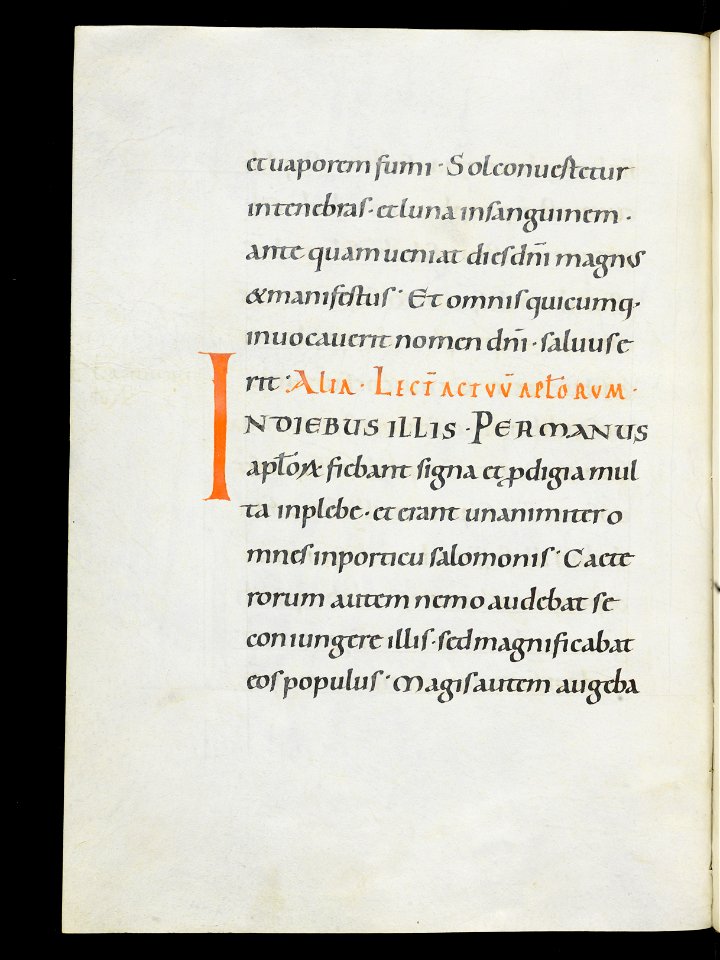 et uaporem fumi · Sol conuertetur
in tenebras · et luna in sanguinem ·
ante quam ueniat dies dn̄i magnus
& manifestus · Et omnis quicumq·
inuocauerit nomen dn̄i · saluus e
rit · ALIA · LECT̄ ACTVV̄ APŁORVM ·
IN DIEBUS ILLIS · PER MANUS
apłoꝝ · fiebant signa et ꝓdigia mul
ta in plebe · et erant unanimiter o
mnes in porticu salomonis · Caete
rorum autem nemo audebat se
coniungere illis · sed magnificabat
eos populus · Magis autem augeba